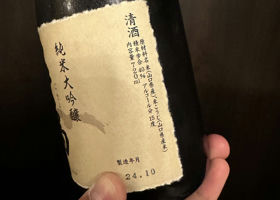 清酒
原材料名 米(山口県産)、米こうじ(山口県産米)
精米歩合 40% アルコール分 15度
内容量 720ml
純米大吟醸
製造年月
24.10